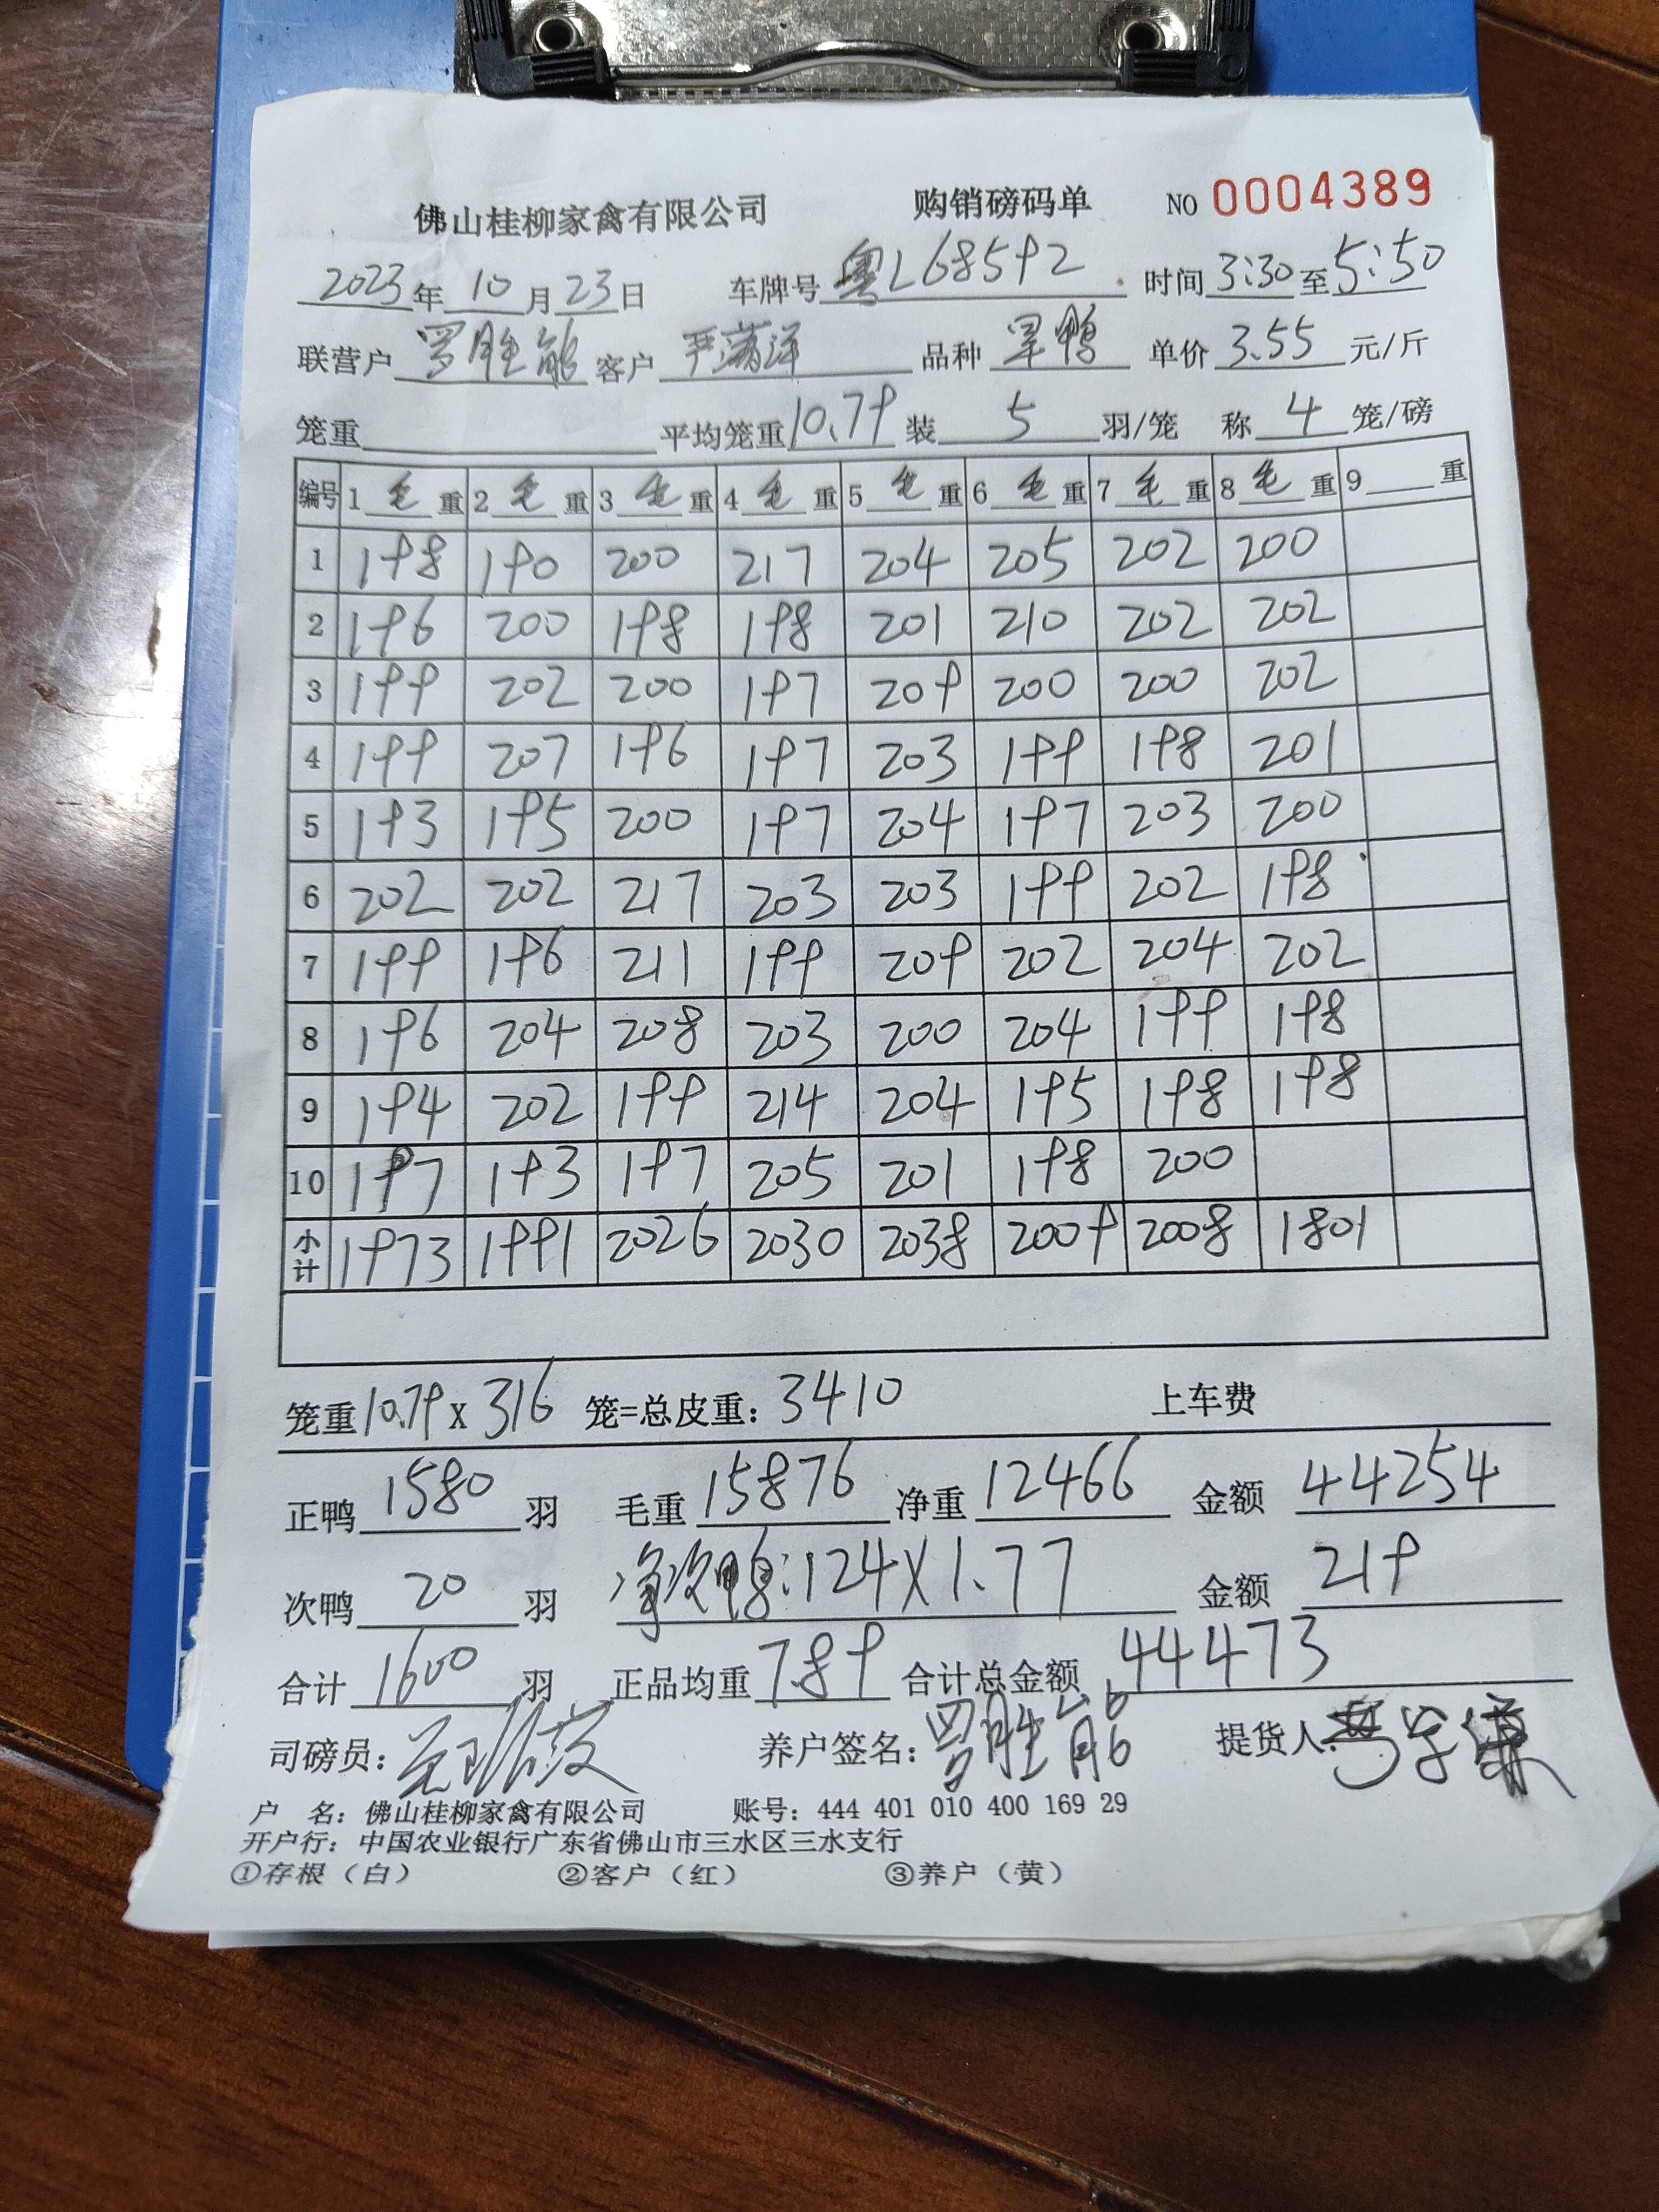 佛山桂柳家禽有限公司 购销磅码单 NO 0004389
2023年10月23日 车牌号 粤L68592 时间 3:30 至 5:50
联营户 罗胜能 客户 严满洋 品种 旱鸭 单价 3.55 元/斤
笼重 平均笼重 10.79 装 5 羽/笼 称 4 笼/磅
编号 1 毛 重 2 毛 重 3 毛 重 4 毛 重 5 毛 重 6 毛 重 7 毛 重 8 毛 重 9 重
1 198 190 200 217 204 205 202 200
2 196 200 198 198 201 210 202 202
3 199 202 200 197 209 200 200 202
4 199 207 196 197 203 199 198 201
5 193 195 200 197 204 197 203 200
6 202 202 217 203 203 199 202 198
7 199 196 211 199 209 202 204 202
8 196 204 208 203 200 204 199 198
9 194 202 199 214 204 195 198 198
10 197 193 197 205 201 198 200
小计 1973 1991 2026 2030 2038 2009 2008 1801
笼重 10.79 X 316 笼=总皮重: 3410 上车费
正鸭 1580 羽 毛重 15876 净重 12466 金额 44254
次鸭 20 羽 净次鸭:124X1.77 金额 219
合计 1600 羽 正品均重 7.89 合计总金额 44473
司磅员: 养户签名: 罗胜能 提货人:
户 名: 佛山桂柳家禽有限公司 账号: 444 401 010 400 169 29
开户行: 中国农业银行广东省佛山市三水区三水支行
①存根(白) ②客户(红) ③养户(黄)